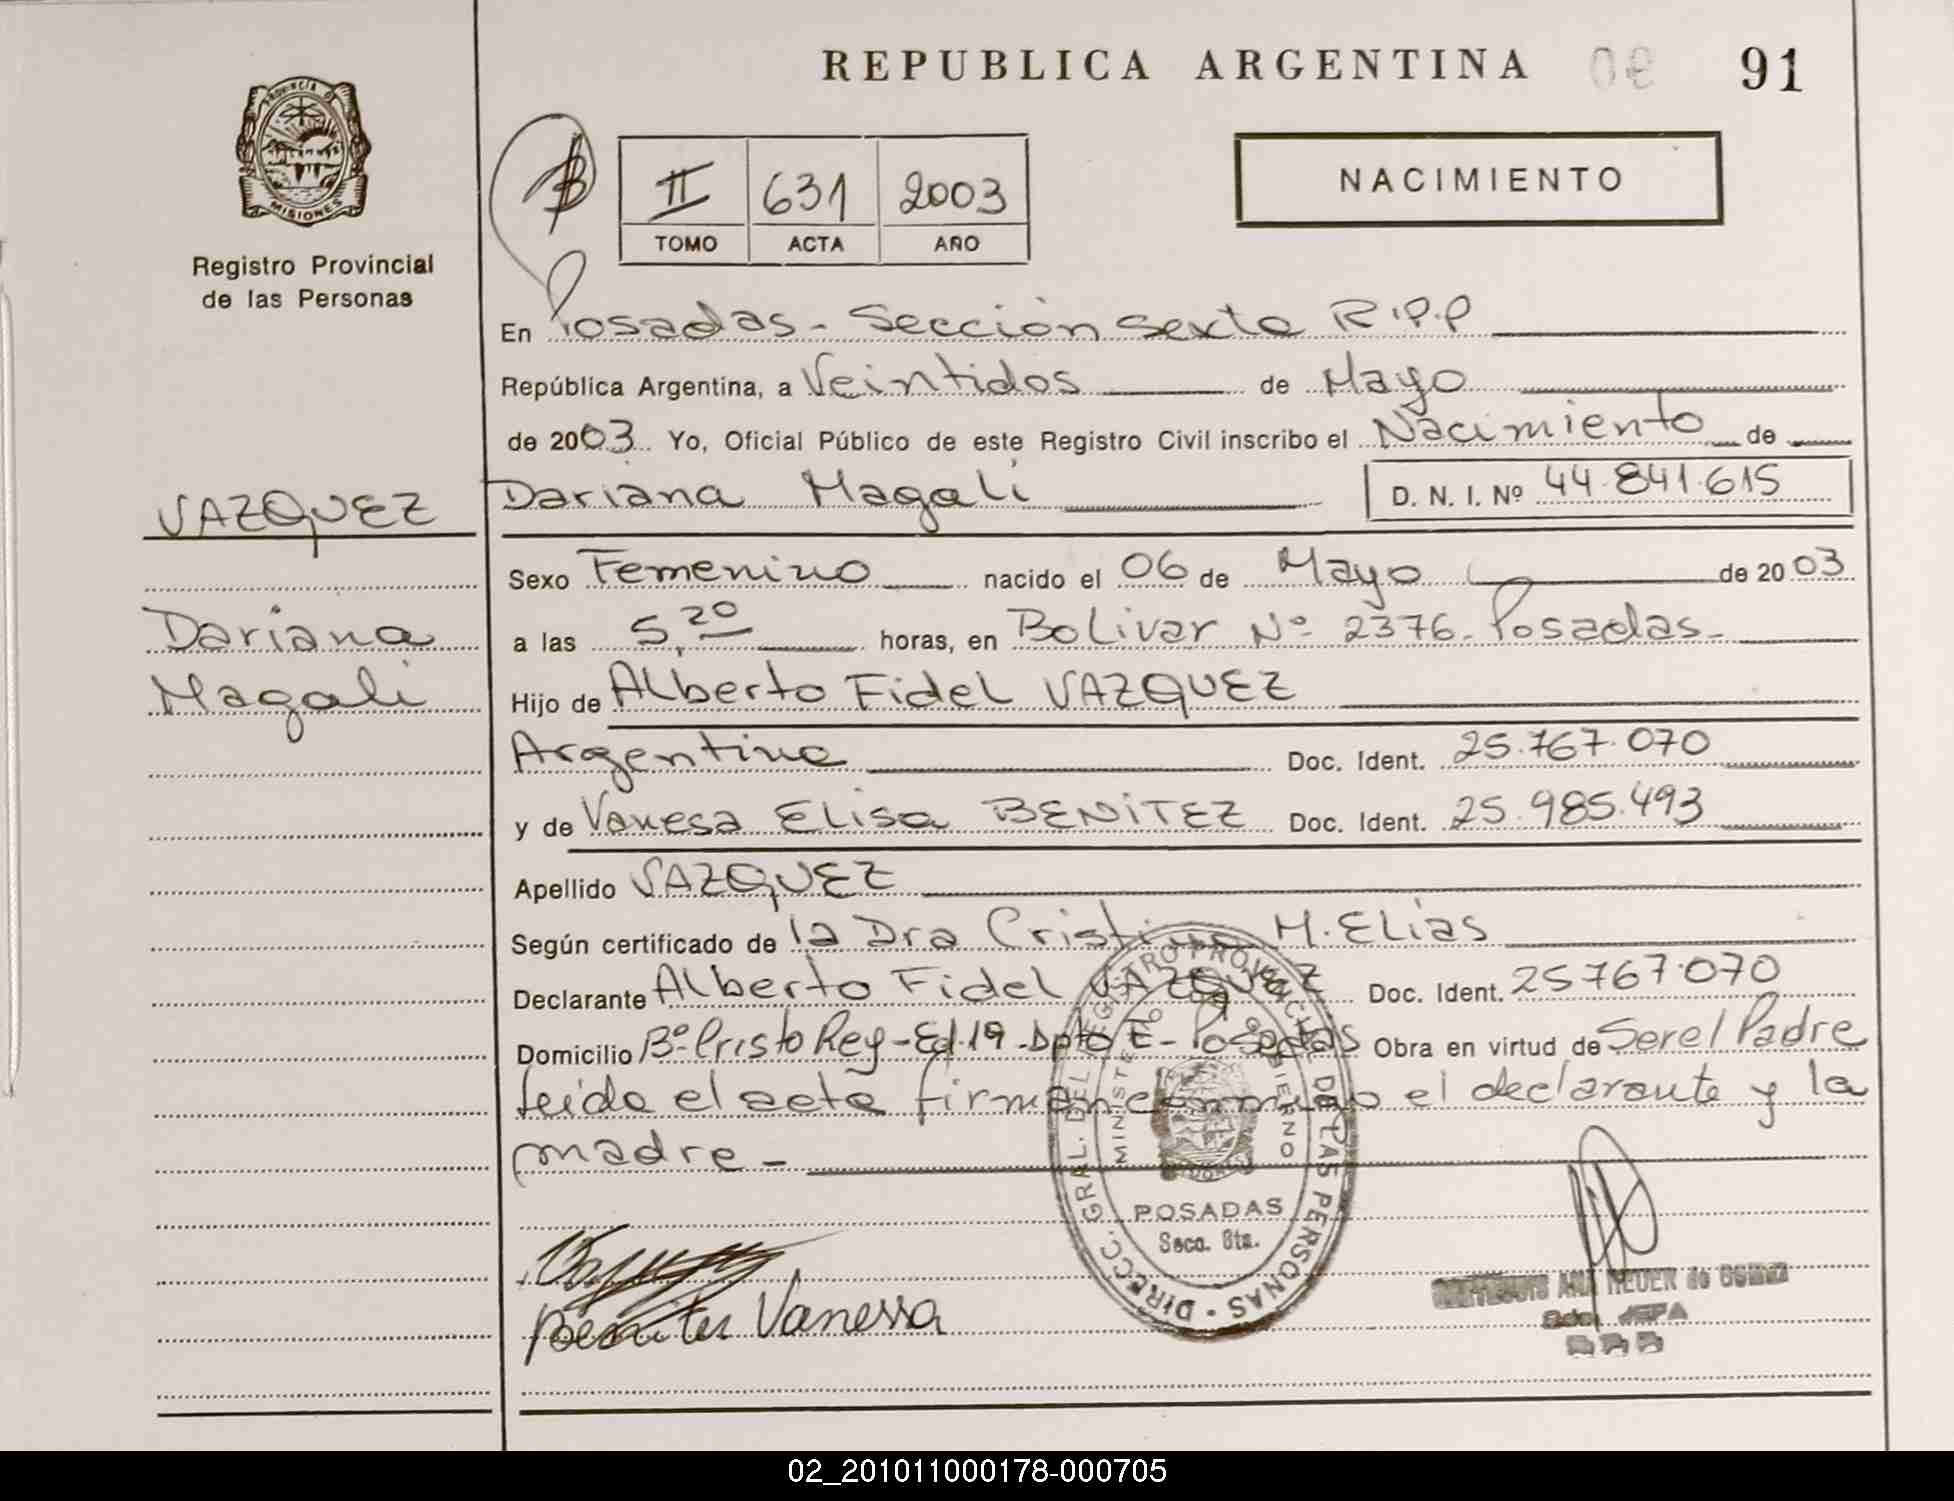 REPUBLICA ARGENTINA 91
PROVINCIA DE
MISIONES
Registro Provincial
de las Personas
II 631 2003
TOMO ACTA AÑO
NACIMIENTO
En Posadas - Sección Sexta R.P.P
República Argentina, a Veintidos de Mayo
de 2003 Yo, Oficial Público de este Registro Civil inscribo el Nacimiento de
VAZQUEZ
Dariana Magali D. N. I. Nº 44.841.615
Sexo Femenino nacido el 06 de Mayo de 2003
Dariana
a las 5,20 horas, en Bolivar Nº 2376 - Posadas -
Magali
Hijo de Alberto Fidel VAZQUEZ
Argentino Doc. Ident. 25.767.070
y de Vanesa Elisa BENITEZ Doc. Ident. 25.985.493
Apellido VAZQUEZ
Según certificado de la Dra Cristina M. Elias
Declarante Alberto Fidel VAZQUEZ Doc. Ident. 25767.070
Domicilio Bº Cristo Rey - Ed. 19 - Dpto E - Posadas Obra en virtud de Ser el Padre
leida el acta firman conmigo el declarante y la
madre -
DIRECC. GRAL. DEL REGISTRO PROVINCIAL DE LAS PERSONAS
MINISTERIO DE GOBIERNO
POSADAS
Secc. 6ta.
Benitez Vanessa
JEFA
02_201011000178-000705